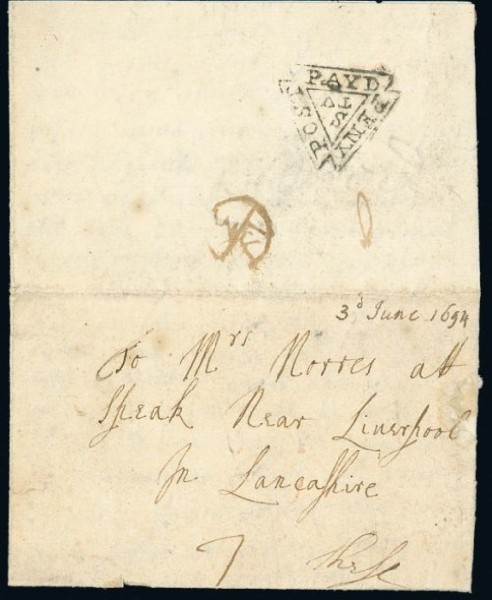 PAYD
PENNY
POST
3d June 1694
To Mrs Norres att
Speak Near Liverpool
In Lancashire
7 These